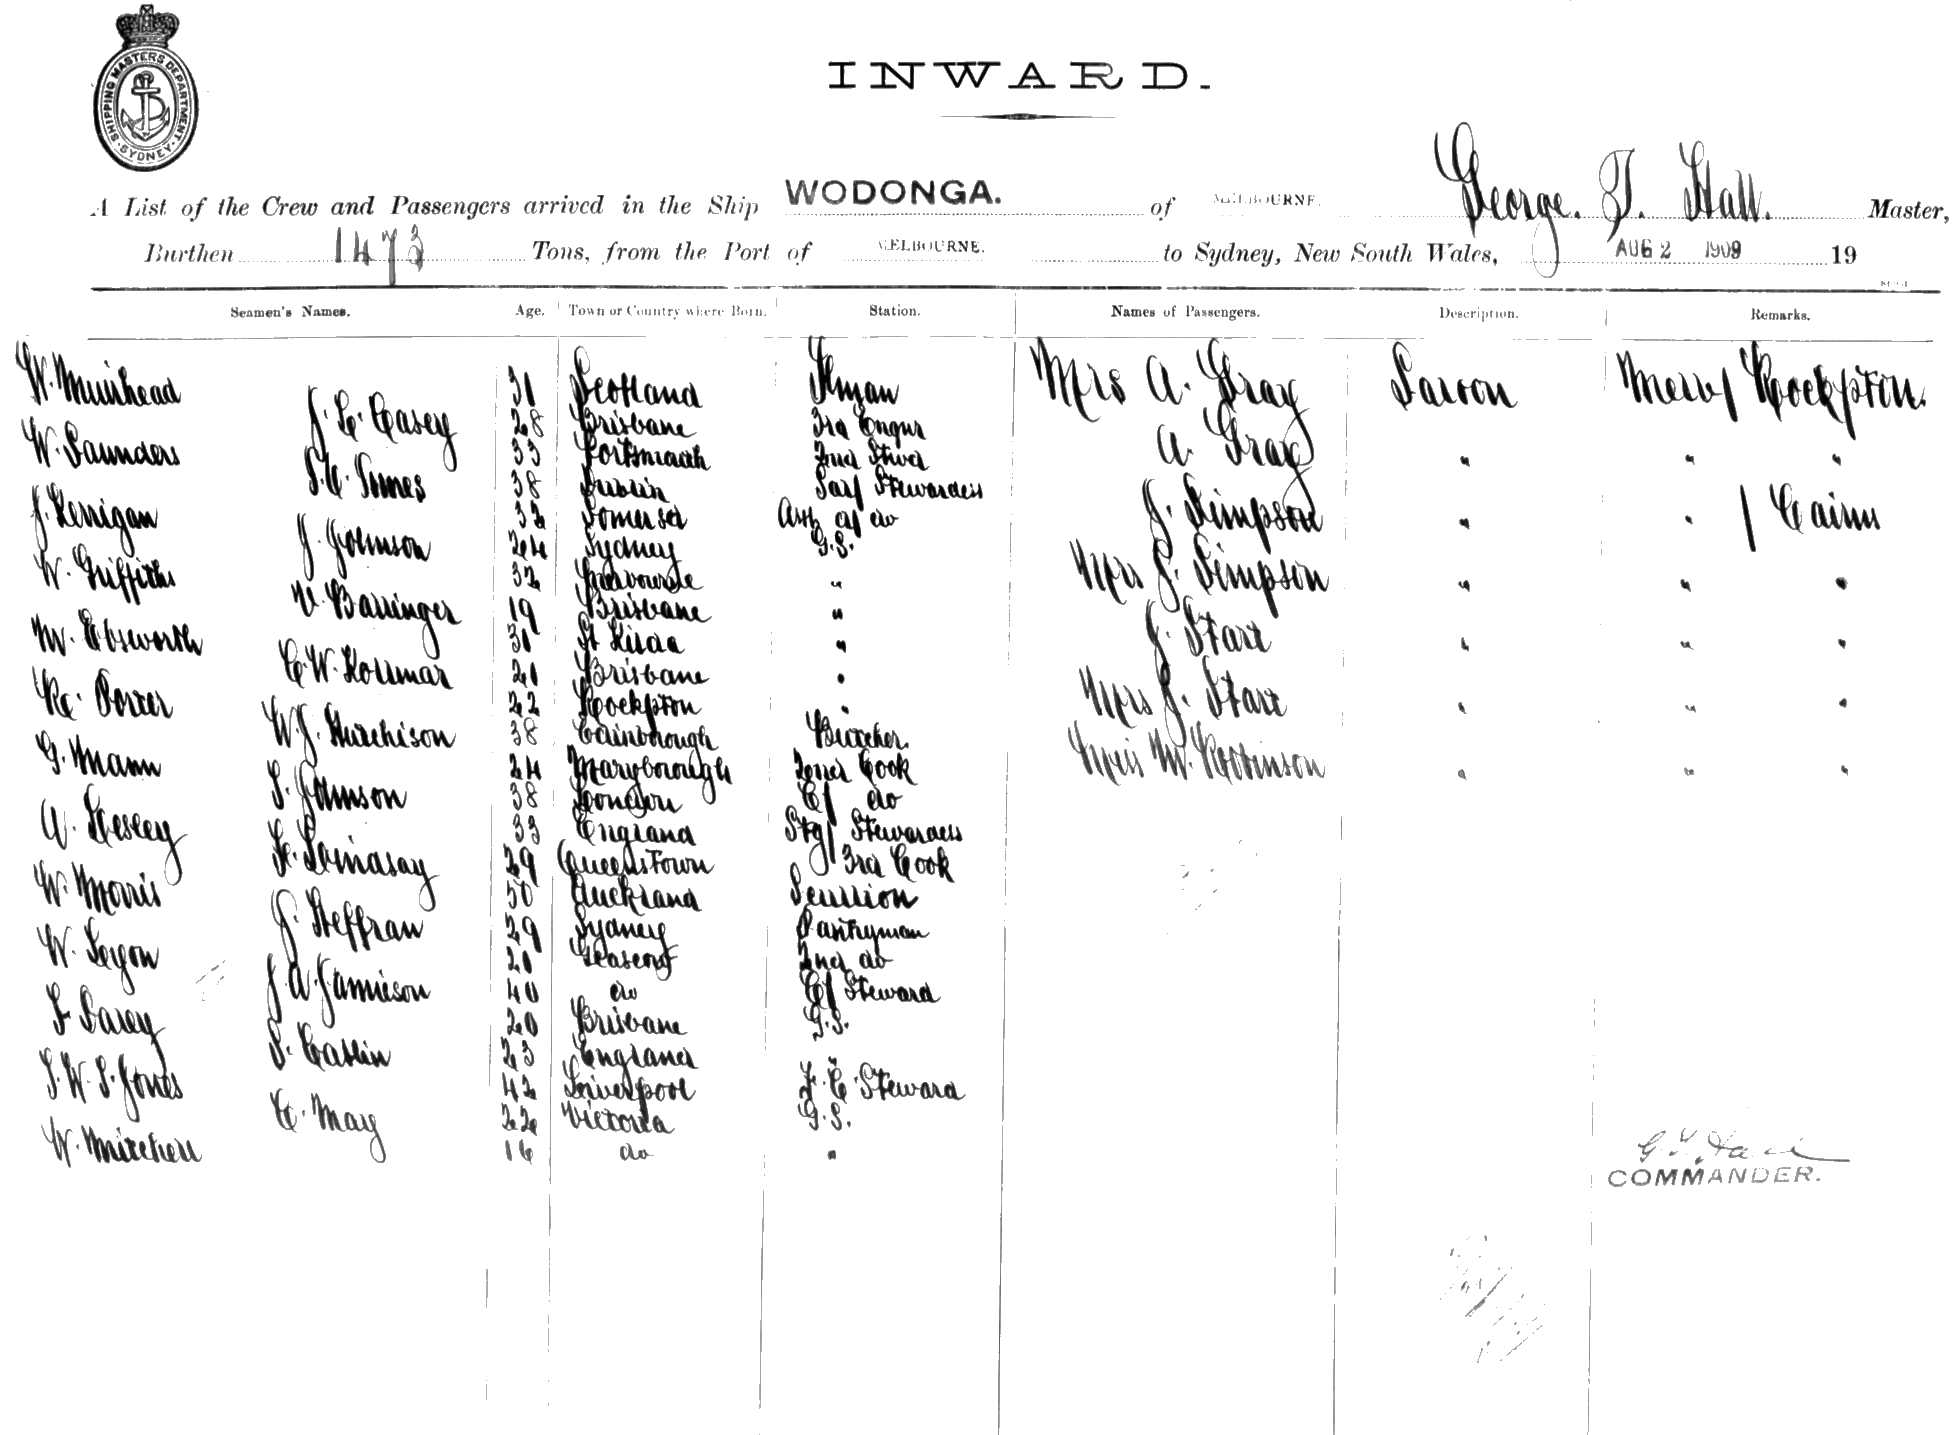 SHIPPING MASTERS DEPARTMENT. SYDNEY
INWARD.
A List of the Crew and Passengers arrived in the Ship WODONGA. of MELBOURNE. George. T. Hall. Master,
Burthen 1473 Tons, from the Port of MELBOURNE. to Sydney, New South Wales, AUG 2 1909 19
Seamen's Names. Age. Town or Country where Born. Station. Names of Passengers. Description. Remarks.
W. Muirhead 31 Scotland Mrs A. Gray Saloon Rockpton.
J. C. Casey 28 Brisbane 3rd Engnr
W. Saunders 33 Portsmouth A. Gray " " "
38 Dublin Stewardess
J. Kerrigan 32 Somerset do J. Simpson " " / Cairns
J. Johnson 24 Sydney G.S.
W. Griffiths 32 Melbourne " Mrs J. Simpson " " "
V. Barringer 19 Brisbane "
M. Ebsworth 31 St Kilda " J. Starr " " "
C. W. Kollmar 20 Brisbane "
Porter 22 Rockpton " Mrs J. Starr " " "
W. J. Hutchison 38 Edinborough Butcher.
G. Mann 24 Maryborough 2nd Cook Miss M. Robinson " " "
S. Johnson 38 London Cf do
A. Lesley 33 England Stewardess
Lindsay 29 Queenstown 3rd Cook
W. Morris 50 Auckland Scullion
J. Heffran 29 Sydney Pantryman
W. Lyon 20 Glasgow 2nd do
J. A. Jamieson 40 do Cf Steward
20 Brisbane G.S.
S. Catlin 23 England "
Jones 42 Liverpool F. C. Steward
C. May 22 Victoria G.S.
W. Mitchell 16 do "
COMMANDER.